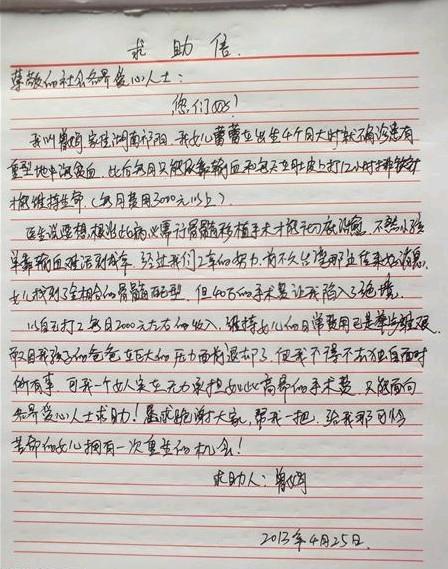 求助信
尊敬的社会各界爱心人士：
您们好！
我叫曾娟家住湖南祁阳，我女儿蕾蕾在出生4个月大时就不确诊患有
重型地中海贫血，此后每月只能依靠输血和每天在肚皮上打12小时排铁针
才能维持生命（每月费用3000元以上）。
医生说要想根治此病必需行骨髓移植手术才能切底治愈，不然小孩
单靠输血难活到成年，经过我们2年的努力，前不久台湾那边传来好消息，
女儿找到了全相合的骨髓配型，但40万的手术费让我陷入了绝境，
以自己打工每月2000元左右的收入，维持女儿的日常费用已是举步维艰，
而且我孩子的爸爸在巨大的压力面前退却了，但我不得不去独自面对
所有事，可我一个女人实在无力承担如此高昂的手术费，只能面向
各界爱心人士求助！屋求跪谢大家，帮我一把，给我那可怜
苦命的女儿拥有一次重生的机会！
求助人：曾娟
2013年4月25日